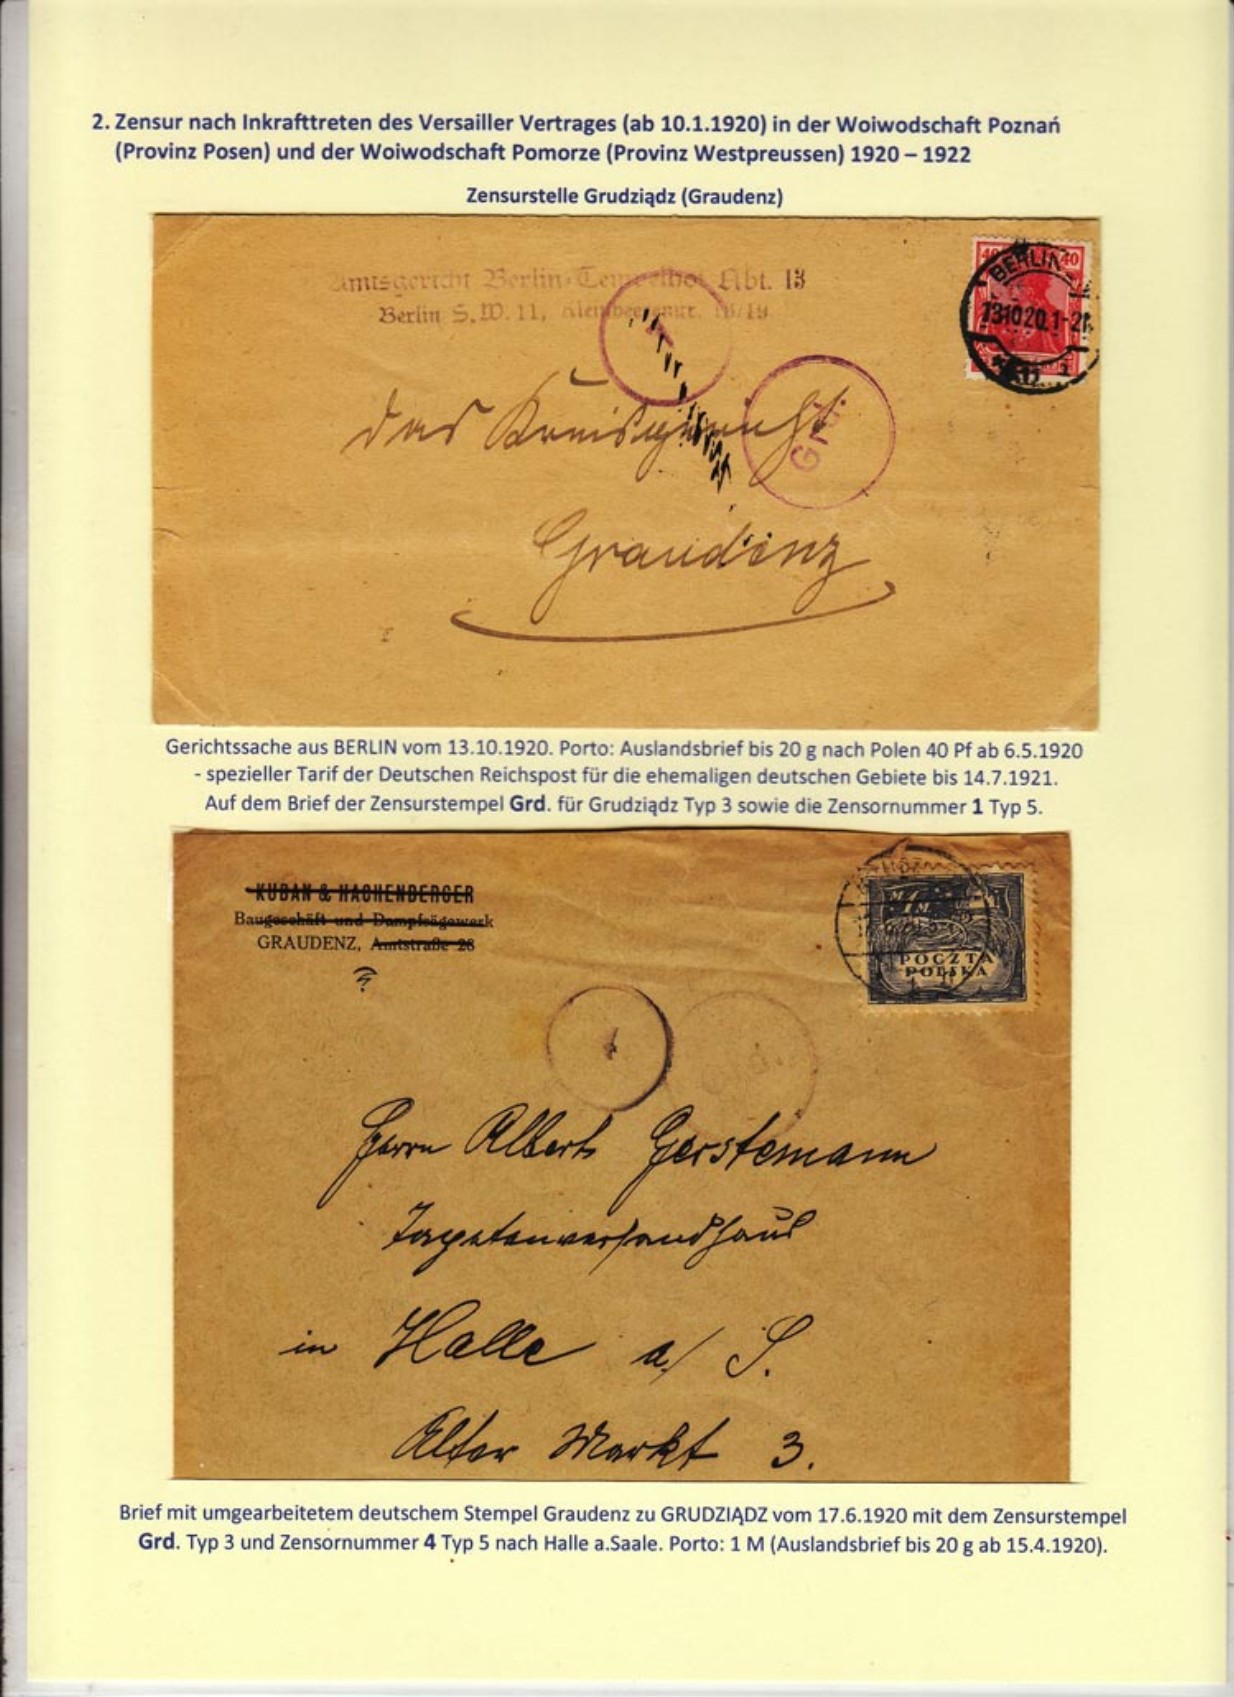 2. Zensur nach Inkrafttreten des Versailler Vertrages (ab 10.1.1920) in der Woiwodschaft Poznań
(Provinz Posen) und der Woiwodschaft Pomorze (Provinz Westpreussen) 1920 – 1922
Zensurstelle Grudziądz (Graudenz)
Amtsgericht Berlin-Tempelhof Abt. 13
Berlin S.W. 11,
40 40
BERLIN
13.10.20.1-2
Grd.
das Kreisgericht
Graudenz
Gerichtssache aus BERLIN vom 13.10.1920. Porto: Auslandsbrief bis 20 g nach Polen 40 Pf ab 6.5.1920
- spezieller Tarif der Deutschen Reichspost für die ehemaligen deutschen Gebiete bis 14.7.1921.
Auf dem Brief der Zensurstempel Grd. für Grudziądz Typ 3 sowie die Zensornummer 1 Typ 5.
KUBAN & HACHENBERGER
Baugeschäft und Dampfsägewerk
GRAUDENZ, Amtstraße 28
POCZTA
POLSKA
4
Herrn Albert Gerstemann
Tapetenversandhaus
in Halle a/ S.
Alter Markt 3.
Brief mit umgearbeitetem deutschem Stempel Graudenz zu GRUDZIĄDZ vom 17.6.1920 mit dem Zensurstempel
Grd. Typ 3 und Zensornummer 4 Typ 5 nach Halle a.Saale. Porto: 1 M (Auslandsbrief bis 20 g ab 15.4.1920).